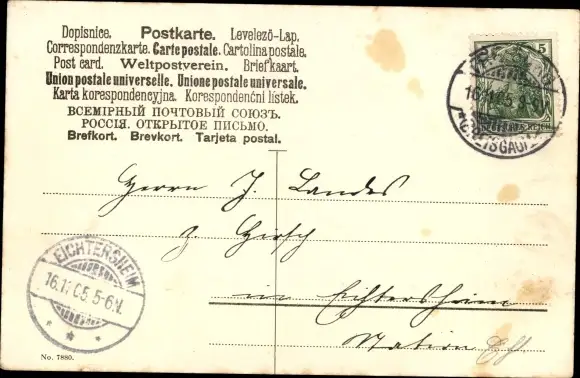 Dopisnice. Postkarte. Levelező-Lap.
Correspondenzkarte. Carte postale. Cartolina postale.
Post card. Weltpostverein. Briefkaart.
Union postale universelle. Unione postale universale.
Karta korespondencyjna. Korespondenční lístek.
ВСЕМІРНЫЙ ПОЧТОВЫЙ СОЮЗЪ.
РОССІЯ. ОТКРЫТОЕ ПИСЬМО.
Brefkort. Brevkort. Tarjeta postal.
5
REICH
Herrn J. Landes
z. Hirsch
in Eichtersheim
Station
EICHTERSHEIM
16.11.05. 5-6.N.
No. 7880.